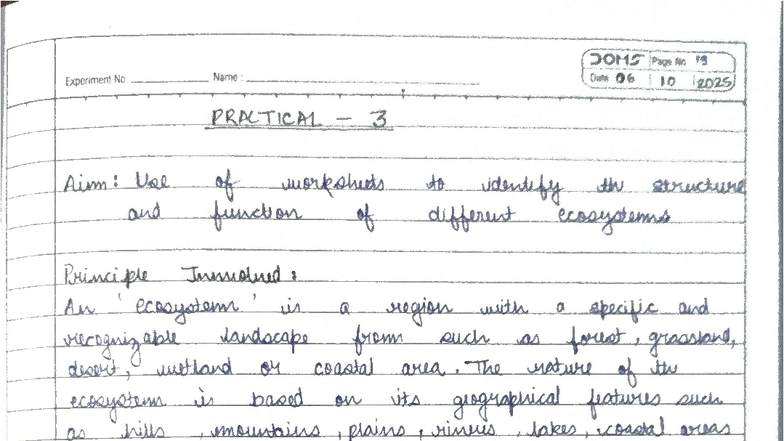 DOMS Page No. 19
Experiment No. Name :
Date 06 10 2025
PRACTICAL - 3
Aim : Use of worksheets to identify the structure
and function of different ecosystems
Principle Involved :
An 'ecosystem' is a region with a specific and
recognizable landscape from such as forest, grassland,
desert, wetland or coastal area. The nature of the
ecosystem is based on its geographical features such
as hills, mountains, plains, rivers, lakes, coastal areas